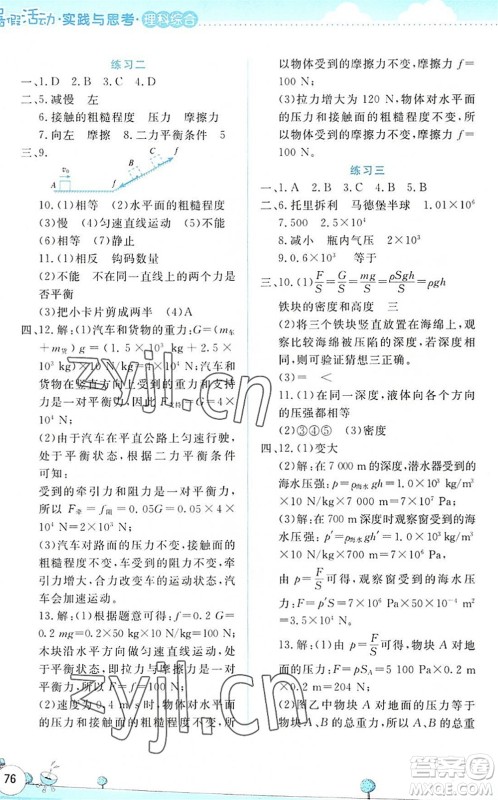 暑假活动·实践与思考·理科综合
练习二
一、1.D 2.B 3.C 4.D
二、5.减慢 左
6.接触的粗糙程度 压力 摩擦力
7.向左 摩擦力 8.二力平衡条件 5
三、9.
v₀
A
f
f
10.(1)相等 (2)水平面的粗糙程度
(3)慢 (4)匀速直线运动
(5)相等 (6)静止
11.(1)相反 钩码数量
(2)不能 不在同一直线上的两个力能
否平衡
(3)把小卡片剪成两半 (4)A
四、12.解:(1)汽车和货物的重力:G=(m车
+m货)g=(1.5×10³ kg+2.5×
10³ kg)×10 N/kg=4×10⁴ N,因为
汽车在竖直方向上受到的重力和支持
力是一对平衡力,所以F支持=G=4×
10⁴ N
(2)由于汽车在平直公路上匀速行驶,处
于平衡状态,根据二力平衡条件可知,
受到的牵引力和阻力是一对平衡力,
所以F牵=f=0.05G=0.05×4×
10⁴ N=2×10³ N
(3)汽车对路面的压力不变,接触面的
粗糙程度不变,车受到的阻力不变,牵
引力增大,合力改变车的运动状态,做
加速运动。
13.解:(1)根据题意可得:f=0.2 G=
0.2 mg=0.2×50 kg×10 N/kg=100 N
木块沿水平方向向右做匀速直线运动,处
于平衡状态,即拉力与摩擦力是一对平
衡力,则拉力大小F=f=100 N。
(2)速度为0.4 m/s时,由于木块对水
平面的压力和接触面的粗糙程度不变,所
以物体受到的摩擦力不变,摩擦力=f=
100 N。
(3)拉力增大为120 N,木块对水平面
的压力和接触面的粗糙程度不变,所
以物体受到的摩擦力不变,摩擦力f=
100 N。
练习三
一、1.A 2.B 3.C 4.B
二、5.托里拆利 马德堡半球 1.01×10⁶
7.500 2.5×10⁴
8.减小 瓶内气压 大气压
9.0.6×10³ 等于
三、10.(1)F/S=G/S=mg/S=ρSgh/S=ρgh
铁块的密度和高度 三
(2)将三个铁块竖直放置在海绵上,观
察比较海绵被压陷的深度,若深度相
同,则可验证猜想三正确。
(3)= <
11.(1)在同一深度,液体向各个方向的
压强相等
(2)③④⑤ (3)密度
四、12.(1)变大
(2)解:在7 000 m的深度,潜水器受到的
海水压强:p=ρ海水gh=1.0×10³ kg/m³×
10 N/kg×7×10³ m=7×10⁷ Pa;
(3)解:在6 000 m深度时观察窗受到的
海水压强:p′=ρ海水gh′=1.0×10³ kg/m³
×10 N/kg×6×10³ m=6×10⁷ Pa,
由p=F/S可得,观察窗受到的海水压
力:F=p′S=6×10⁷ Pa×0.06 m²
=3.6×10⁶ N。
13.解:(1)由p=F/S可得,物块A对地
面的压力:F=pSA=5 100 Pa×0.01
m²=51 N;
(2)图乙中物块A对地面的压力等于
物块A、B的总重力,所以A、B的总重
76
zyjl.cn
zyjl.cn
答案圈
MXQE.COM